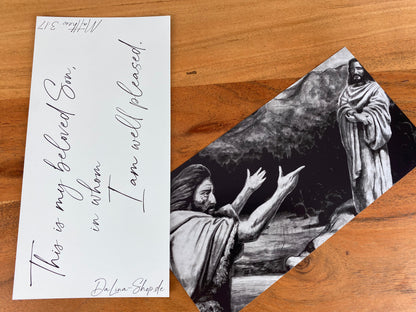 This is my beloved Son,
in whom
I am well pleased.
Matthew 3:17
DaLina-Shop.de